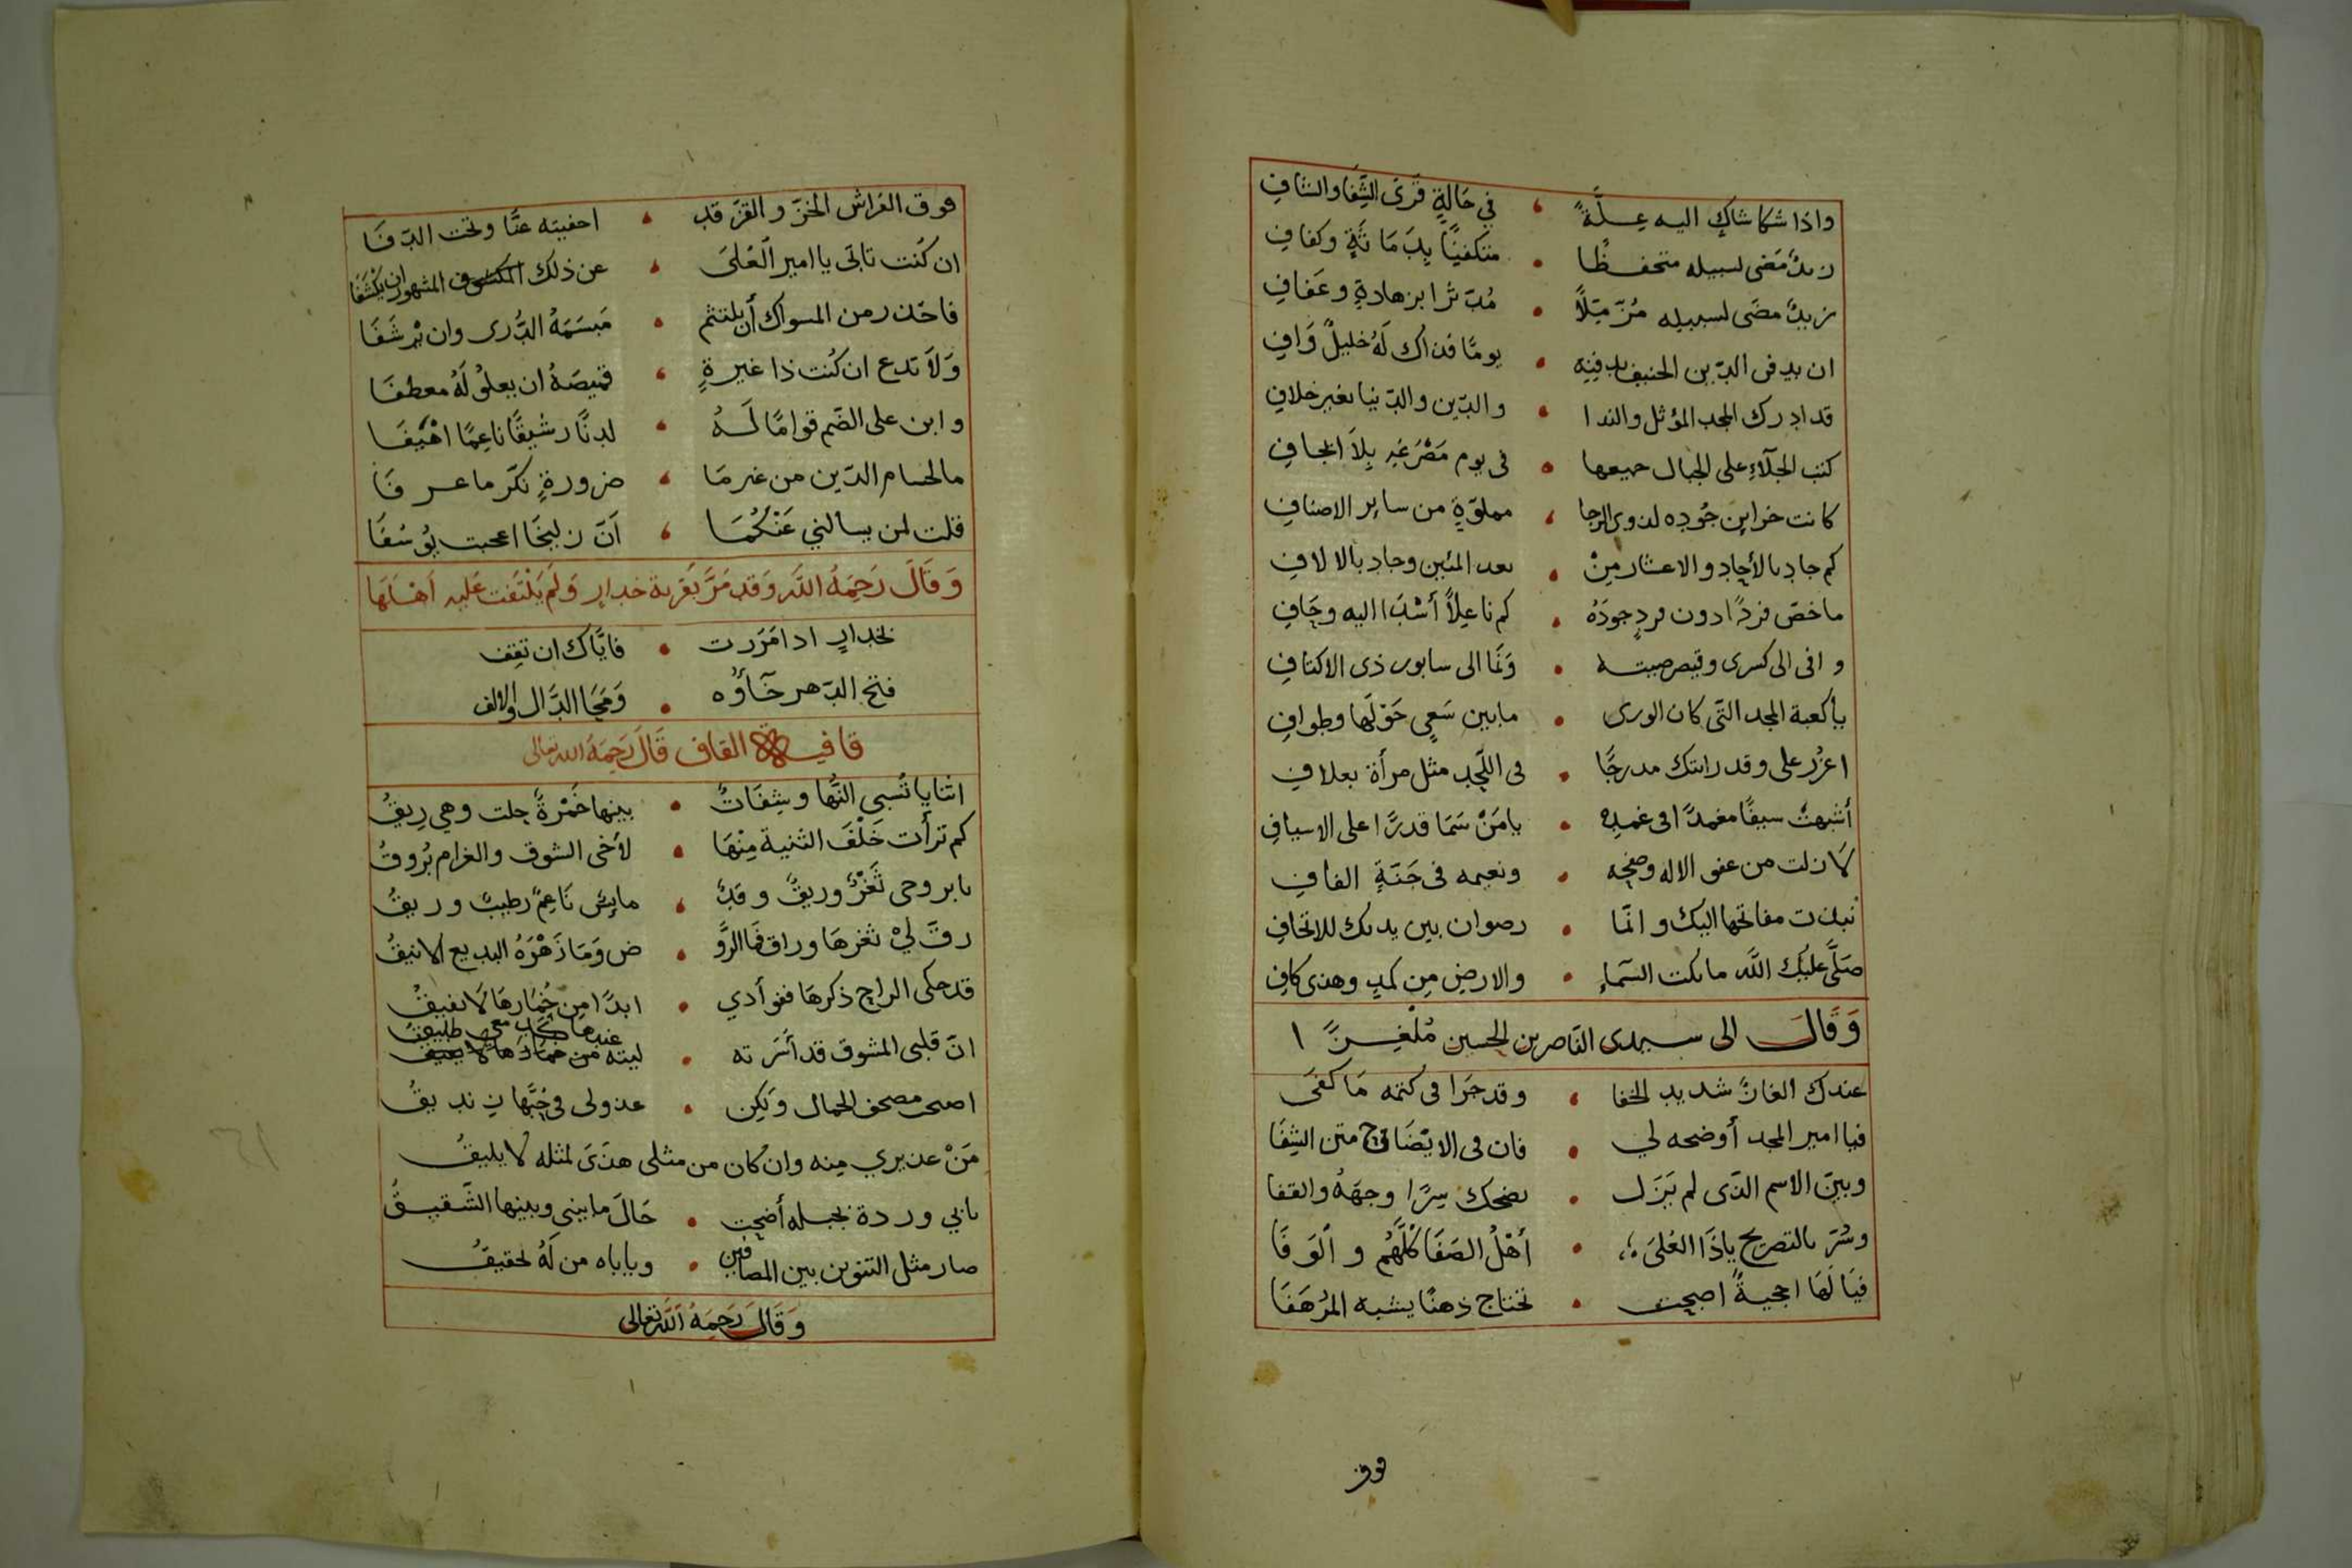 واذا شكا شاكٍ اليه عِلَّةً ، في حَالةٍ قَرَى الشِّفا والشافِ
زيدٌ مَضى لسبيله متحفظًا • متكفنًا بِدَمَاثَةٍ وكفافِ
زيدٌ مضَى لسبيله مُزّمّلًا • مُدّثرا بزهادةٍ وعَفافِ
ان يدفى الدّين الحنيف بدفنِه • يومًا فذاك لَهُ خليلٌ وَافِ
قد ادرك المجد المؤثل والندا • والدّين والدّنيا بغير خلافِ
كتب الجلآء على الجبال جميعها • فى يوم مَصْرَعِه بِلاَ
كانت خزاين جُوده لذوى الرجا ، مملوّةٍ من ساير الاصنافِ
كم جاد بالأحاد والاعشار مِنْ • بعد المئين وجاد بالالافِ
ما خصّ فردًا دون فردٍ جودَهُ • كم ناعِلاً أسْدَا اليه وحَافِ
وافى الى كسرى وقيصر صيته • وَنَمَا الى سابور ذى الاكتافِ
يا كعبة المجد التّى كان الورى • مابين سَعىٍ حَوْلَها وطوافِ
اعزُز على وقد رايتك مدرجًا • فى اللّحد مثل مرأة بغلافِ
أشبهتْ سيفًا مغمدًا فى غمدِه • يا مَنْ سَمَا قدرًا على الاسيافِ
لَا زلت من عفو الاله وصفحِه • ونعيمه فى جَنّةٍ الفافِ
نبذت مفاتحها اليك وانّما • رضوان بين يديك للاتحافِ
صَلَّى عليك اللَّه ما بكت السّماءِ • والارض مِن كمدٍ وهذى كافِ
وَقَالَ الى سيدى الناصر بن الحسين مُلغِزًا
عندك الغازٌ شديد الخفا ، وقد جَرَا فى كتمه مَا كفَى
فيا امير المجد أوضحه لي • فان فى الايْضَاح متن الشِفَا
وبيّن الاسم الذّى لم يَزَل • يضحك سِرًا وجهَهُ والقفا
وسُرّ بالتصريح ياذَا العُلىَ • أهْلُ الصَفَا كُلَّهُم والوَفَا
فيَا لَهَا احجيةً اصبحت • تحتاج ذهنًا يشبه المرْهَفَا
فوق
فوق الفراش الخزّ والقزّ قد ، اخفيته عنّا وتحت الدّفَا
ان كُنت تابَى يا امير العُلىَ ، عن ذلك المكشوف المشهور ان يكشفا
فاحذر من المسواك أن يلتثم • مَبسَمَهُ الدُّرى وان يرْشَفَا
وَلاَ تدع ان كُنت ذا غيرةٍ ، قميصَهُ ان يعلوْ لَهُ معطفَا
وابن على الضّم قوامًا لَهُ • لدنًا رشيقًا ناعِمًا اهْيَفَا
مالحسام الدّين من غير مَا ، ضرورةٍ نكّر ما عرفَا
فقلت لمن يسالني عَنْكُمَا ، اَنّ زليخَا اعجبت يُوسُفَا
وَقَالَ رَحِمَهُ اللَّه وَقد مَرَّ بقرية خدار وَلَم يَلْتَفت عَليه اَهْلَهَا
بخدارٍ اذا مَرَرت • فايَّاك ان تقِف
فتح الدّهر خآؤُه • وَمَحَا الدَّال والالف
قافيه القاف قَالَ رَحِمَهُ الله تعالى
اثنايا تُسبي النُّها وشِفَاتٌ • بينها خَمْرةً جلت وهي رِيقُ
كم ترأت خَلْفَ الثنية مِنْهَا • لأخى الشوق والغرام بُروقُ
بابروحى ثَغْرٌ وريقٌ وقدٌ ، مايسٌ نَاعِمٌ رطيبٌ وريقُ
رقّ ليْ ثغزهَا وراق فما الرَّو • ض وَمَا زَهْرَهُ البديع الانيقُ
قد حكى الراح ذكرهَا ففوأدي • ابدًا مِن خُمَارهَا لَا يفيقُ
انّ قلبى المشوق قد أسَرته • ليته عندها معى طليقُ
اصحى مصحف الجمال ولكِن • عذولى فى حُبّها زنديقُ
مَنْ عذيري مِنه وان كان من مثلى هذَى لمثله لا يليقُ
بابي وردة بخبله أضحت • حَالَ مابيني وبينها الشَّقيقُ
صار مثل التنوين بين المضافين • وياباه من لَهُ تحقيقُ
وَقَالَ رَحِمَهُ اللَّه تعالى